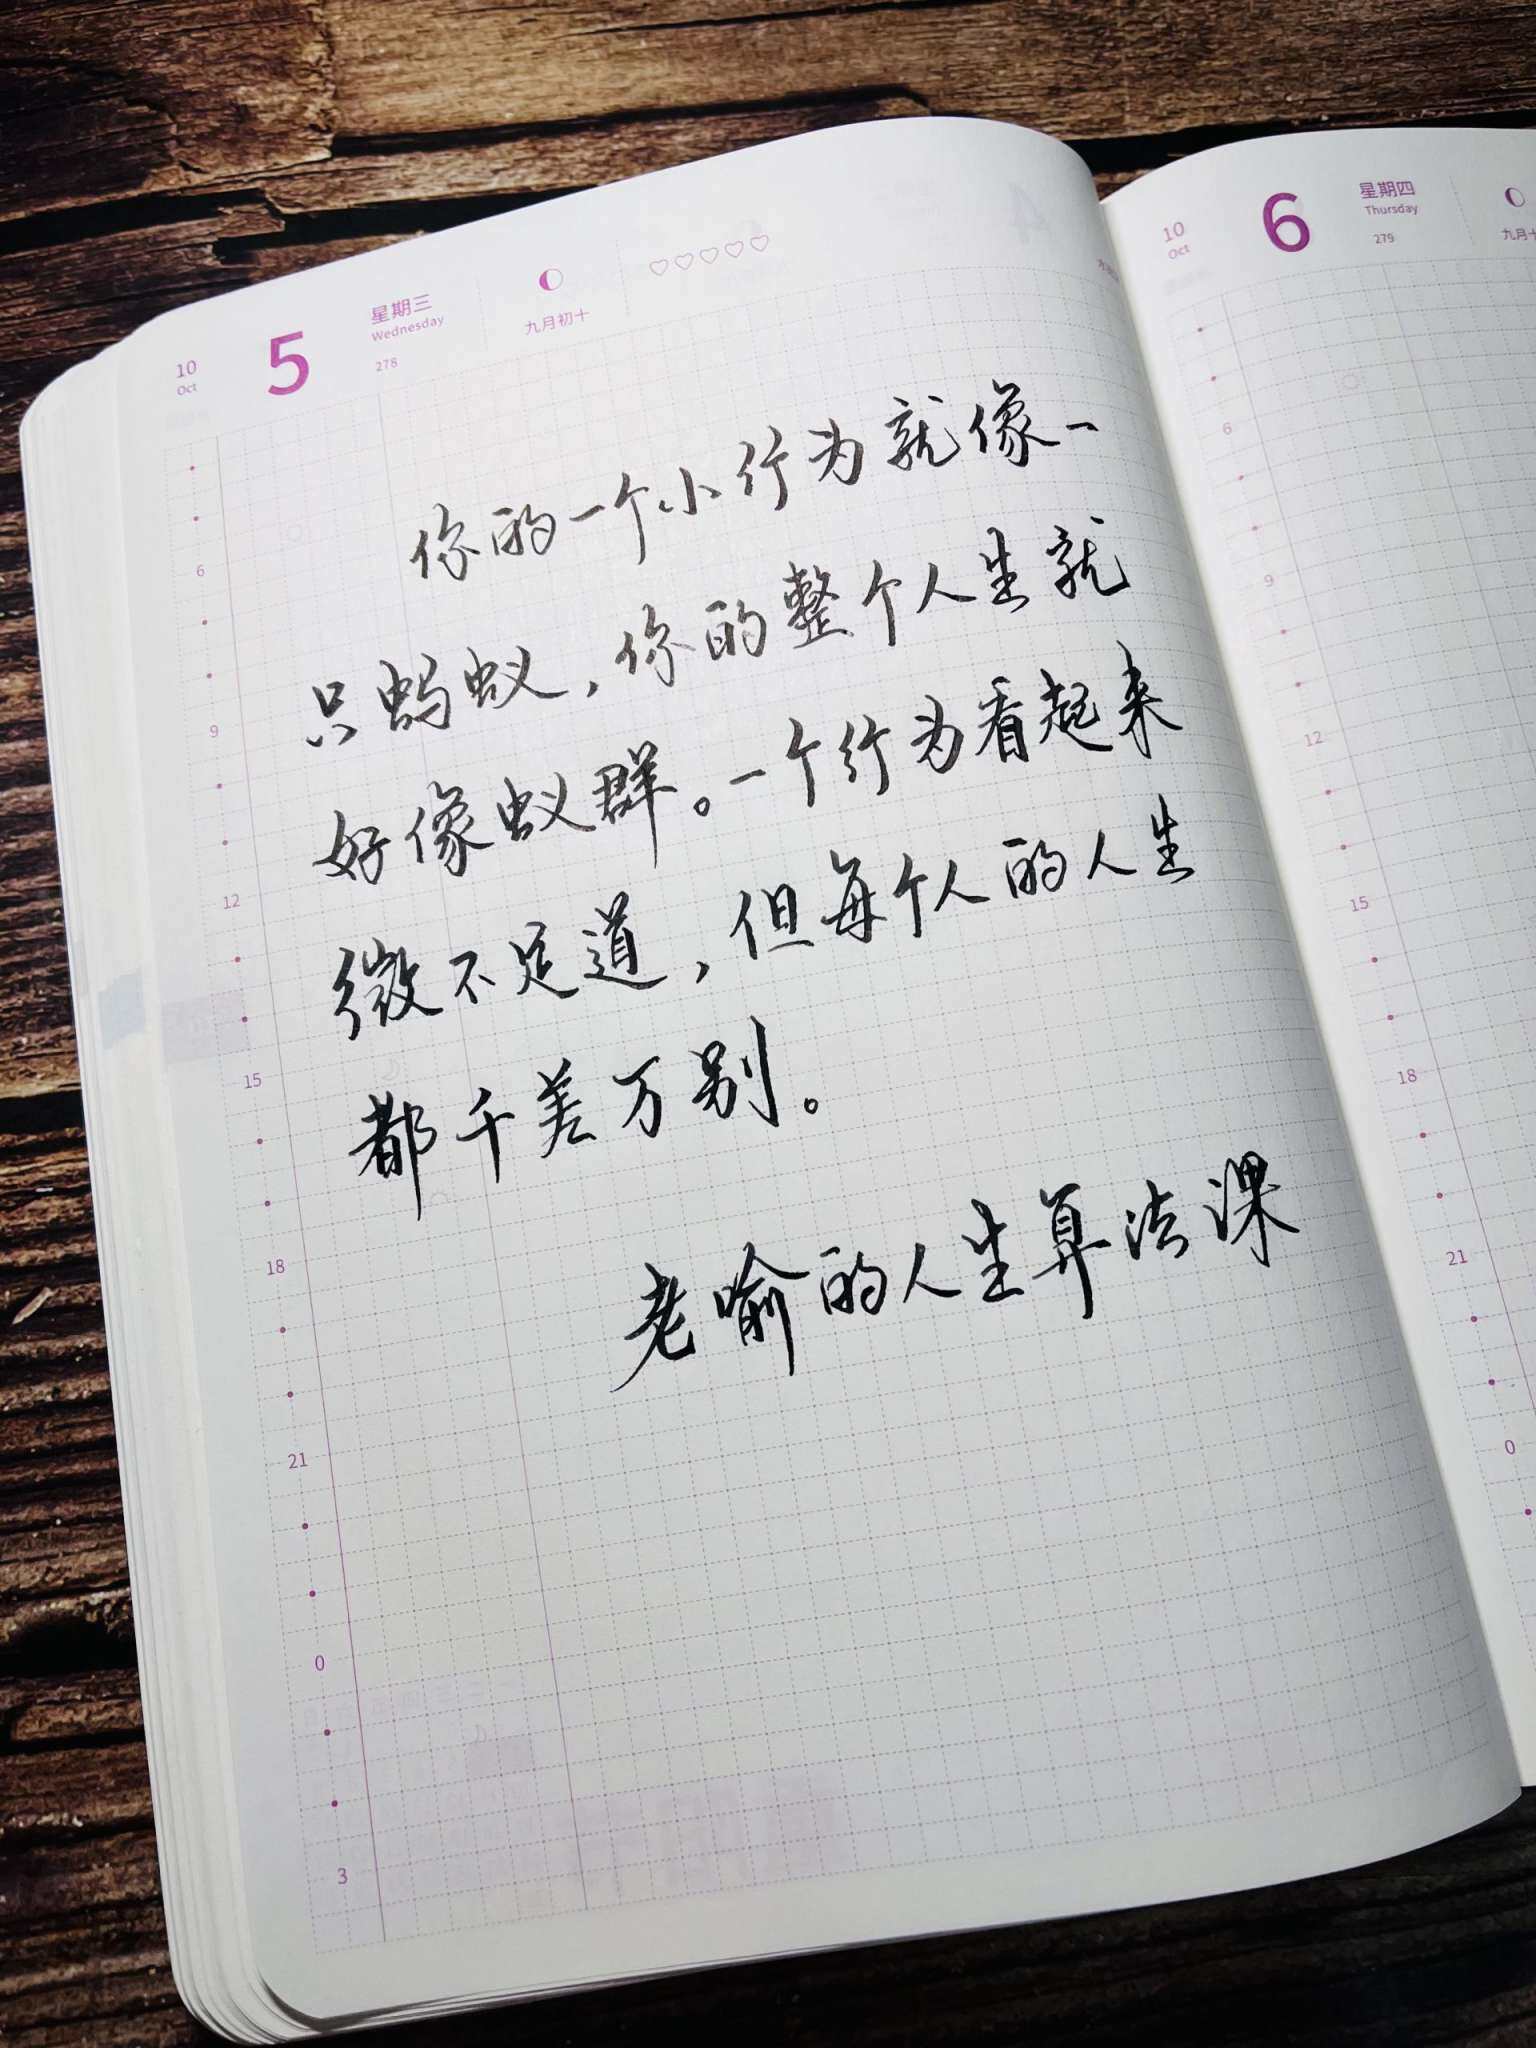 10
Oct
5
星期三
Wednesday
278
九月初十
你的一个小行为就像一
只蚂蚁，你的整个人生就
好像蚁群。一个行为看起来
微不足道，但每个人的人生
都千差万别。
老喻的人生算法课
6
9
12
15
18
21
0
3
10
Oct
6
星期四
Thursday
279
九月十
6
9
12
15
18
21
0